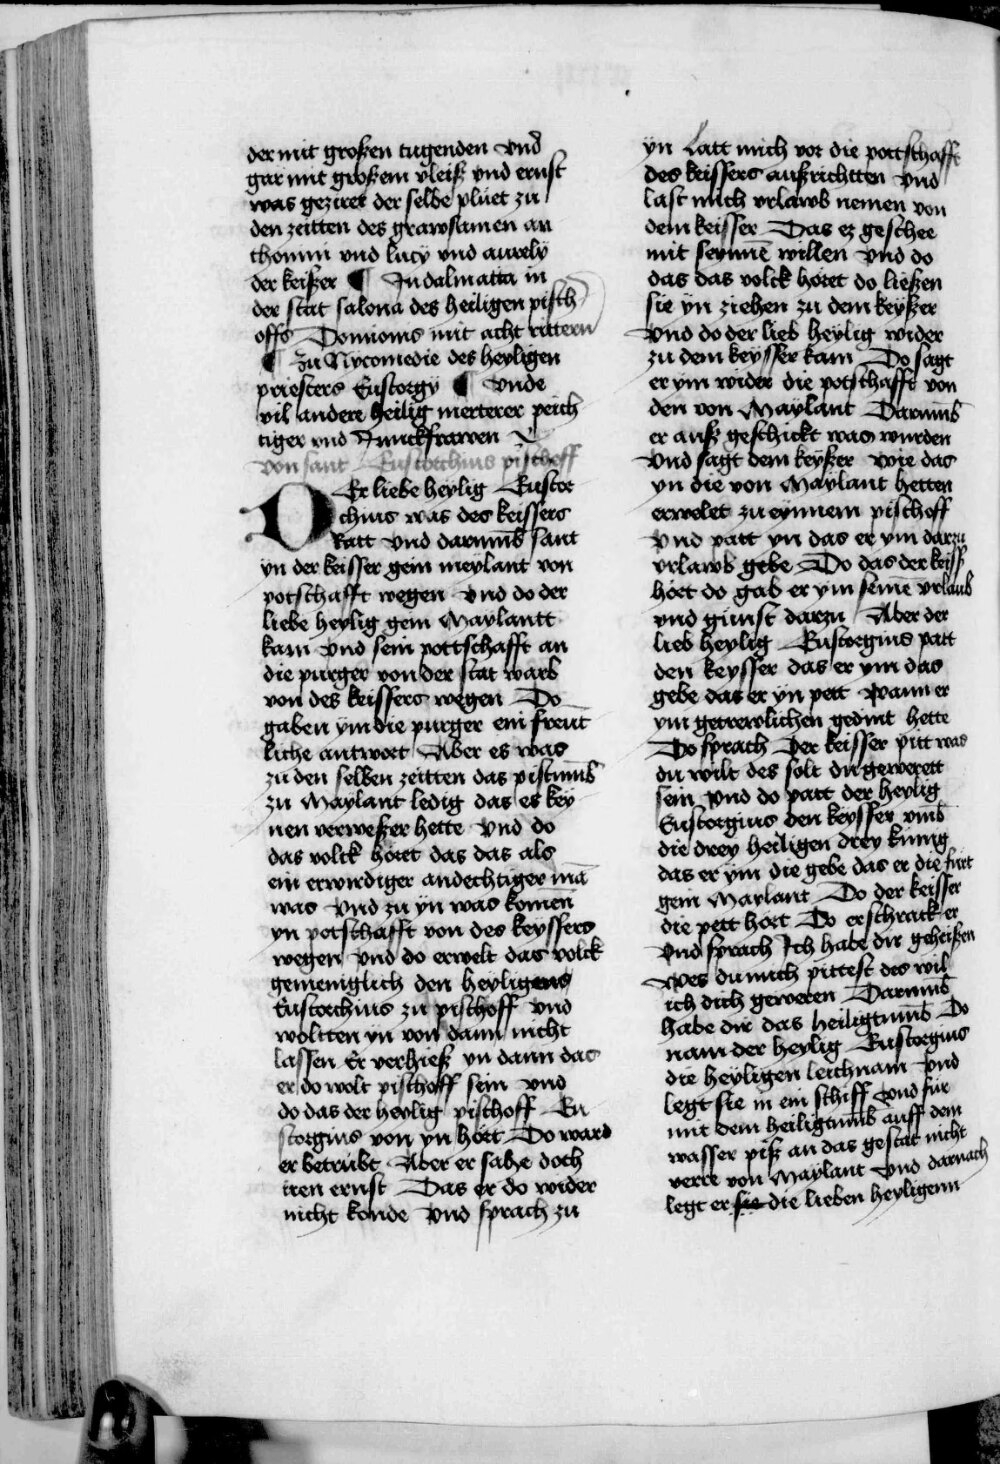 der mit großen tugenden vnd
gar mit großem vleiß vnd ernst
was geziret der selbe pluet zu
den zeitten des grawsamen an
thonini vnd lucÿ vnd aurelÿ
der keißer ¶ In dalmatia in
der stat salona des heiligen pisch
offs Domions mit acht rittern
¶ Zu Nycomedie des heyligen
priesters Eustorgÿ ¶ Vnde
vil andere heilig merterer peich
tiger vnd Junckfrawen
Von sant Eustorchius pischoff
DEr liebe heylig Eustor
chius was des keissers
Ratt vnd darumb sant
yn der keisser gein meylant von
potschafft wegen vnd do der
liebe heylig gein Maylantt
kam vnd sein pottschafft an
die purger von der stat warb
von des keissers wegen Do
gaben ym die purger ein freut
liche antwort Aber es was
zu den selben zeitten das pistumb
zu Maylant ledig das es key
nen verweßer hette vnd do
das volck hort das das als
ein erwirdiger andechtiger mā
was vnd zu yn was komen
yn potschafft von des keyssers
wegen vnd do erwelt das volck
gemeniglich den heyligens
Eustorchius zu pischoff vnd
woltten yn von dann nicht
lassen Er verhieß yn dann das
er do wolt pischoff sein vnd
do das der heylig pischoff Eu
storgius von yn hört Do ward
er betrubt Aber er sahe doch
iren ernst Das er do wider
nicht konde vnd sprach zu
yn Latt mich vor die pottschafft
des keissers außrichtten vnd
last mich vrlawb nemen von
dem keisser Das ez geschee
mit seynnē willen vnd do
das das volck horet do ließen
sie yn ziehen zu dem keyßer
vnd do der lieb heylig wider
zu dem keysser kam Do sagt
er ym wider die potschafft von
den von Maylant Darumb
er auß geschickt was wurden
vnd sagt dem keyßer wie das
yn die von Maylant hetten
erwelet zu eynnem pischoff
vnd patt yn das er ym darzu
vrlawb gebe Do das der keiss
hört do gab er ym seinē vrlaub
vnd gunst darzu Aber der
lieb heylig Eustorgius patt
den keysser das er ym das
gebe das er yn pett wann er
ym getrewlichen gedint hette
Do sprach Der keisser pitt was
du wilt des solt du gewerett
sein vnd do patt der heylig
Eustorgius den keysser vmb
die drey heiligen drey kunig
das er ym die gebe das er die furt
gein Maylant Do der keisser
die pett hort Do erschrack er
vnd sprach Ich habe dir geheißen
Wes du mich pittest des wil
ich dich geweren Darumb
habe dir das heiligtumb Do
nam der heylig Eustorgius
die heyligen leichnam vnd
legt sie in ein schiff vnd fur
mit dem heiligtumb auff dem
wasser piß an das gestat nicht
verre von Maylant vnd darnach
legt er sie die lieben heyligenn